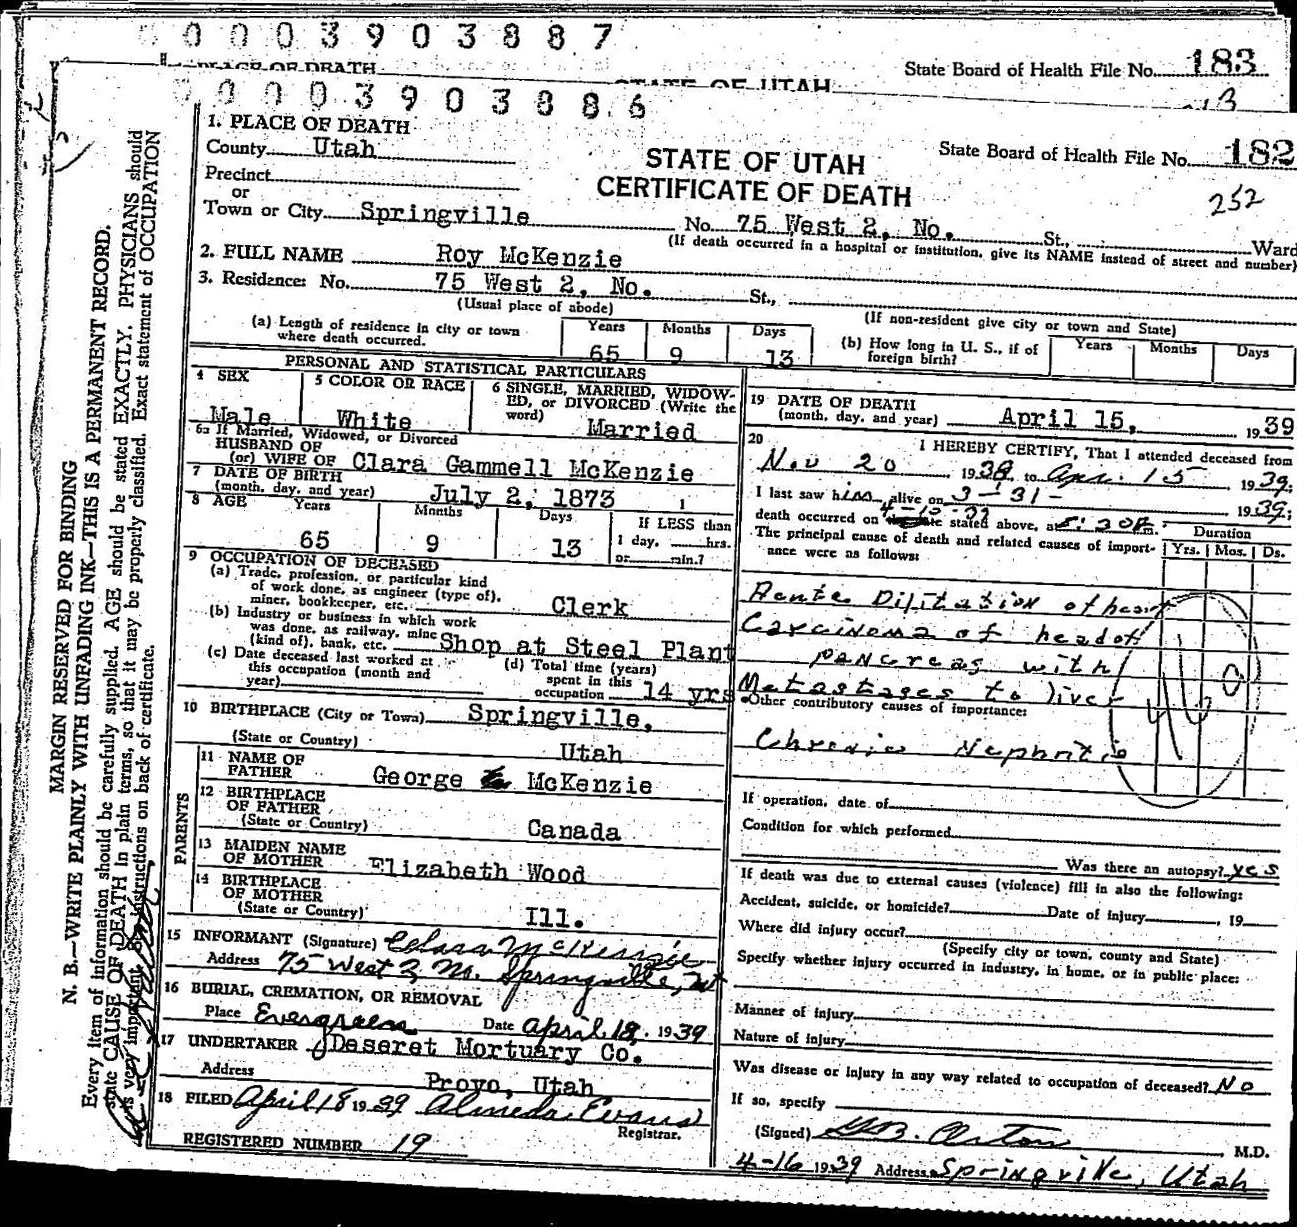 0 0 0 3 9 0 3 8 8 7
PLACE OF DEATH
STATE OF UTAH
State Board of Health File No. 183
0 0 0 3 9 0 3 8 8 6
1. PLACE OF DEATH
County Utah
STATE OF UTAH
CERTIFICATE OF DEATH
State Board of Health File No. 182
252
Precinct
or
Town or City Springville No. 75 West 2, No. St., Ward
(If death occurred in a hospital or institution, give its NAME instead of street and number)
2. FULL NAME Roy McKenzie
3. Residence: No. 75 West 2, No. St.,
(Usual place of abode) (If non-resident give city or town and State)
(a) Length of residence in city or town where death occurred. Years 65 Months 9 Days 13
(b) How long in U. S., if of foreign birth? Years Months Days
PERSONAL AND STATISTICAL PARTICULARS
4 SEX Male
5 COLOR OR RACE White
6 SINGLE, MARRIED, WIDOWED, or DIVORCED (Write the word) Married
6a If Married, Widowed, or Divorced
HUSBAND OF
(or) WIFE OF Clara Gammell McKenzie
7 DATE OF BIRTH
(month, day, and year) July 2, 1873
8 AGE Years 65 Months 9 Days 13
If LESS than
1 day, hrs.
or min.?
9 OCCUPATION OF DECEASED
(a) Trade, profession, or particular kind
of work done, as engineer (type of),
miner, bookkeeper, etc. Clerk
(b) Industry or business in which work
was done, as railway, mine
(kind of), bank, etc. Shop at Steel Plant
(c) Date deceased last worked at
this occupation (month and
year)
(d) Total time (years)
spent in this
occupation 14 yrs
10 BIRTHPLACE (City or Town) Springville,
(State or Country) Utah
PARENTS
11 NAME OF
FATHER George McKenzie
12 BIRTHPLACE
OF FATHER
(State or Country) Canada
13 MAIDEN NAME
OF MOTHER Elizabeth Wood
14 BIRTHPLACE
OF MOTHER
(State or Country) Ill.
15 INFORMANT (Signature) Clara McKenzie
Address 75 West 2 No. Springville, Ut
16 BURIAL, CREMATION, OR REMOVAL
Place Evergreen Date April 18, 1939
17 UNDERTAKER Deseret Mortuary Co.
Address Provo, Utah
18 FILED April 18 1939 Almeda Evans
Registrar.
REGISTERED NUMBER 19
19 DATE OF DEATH
(month, day, and year) April 15, 1939
20 I HEREBY CERTIFY, That I attended deceased from
Nov 20 1938 to Apr. 15 1939;
I last saw him alive on 3-31- 1939;
death occurred on 4-15-39 stated above, at 5:30P m.
The principal cause of death and related causes of importance were as follows:
Duration
Yrs. Mos. Ds.
Acute Dilitation of heart
Carcinoma of head of
pancreas with
Metastases to liver
Other contributory causes of importance:
Chronic Nephritis
46
If operation, date of
Condition for which performed
Was there an autopsy? yes
If death was due to external causes (violence) fill in also the following:
Accident, suicide, or homicide? Date of injury , 19
Where did injury occur?
(Specify city or town, county and State)
Specify whether injury occurred in industry, in home, or in public place:
Manner of injury
Nature of injury
Was disease or injury in any way related to occupation of deceased? No
If so, specify
(Signed) , M.D.
4-16 1939 Address Springville, Utah
MARGIN RESERVED FOR BINDING
N. B.—WRITE PLAINLY WITH UNFADING INK—THIS IS A PERMANENT RECORD.
Every item of information should be carefully supplied. AGE should be stated EXACTLY. PHYSICIANS should
state CAUSE OF DEATH in plain terms, so that it may be properly classified. Exact statement of OCCUPATION
is very important. See instructions on back of certificate.